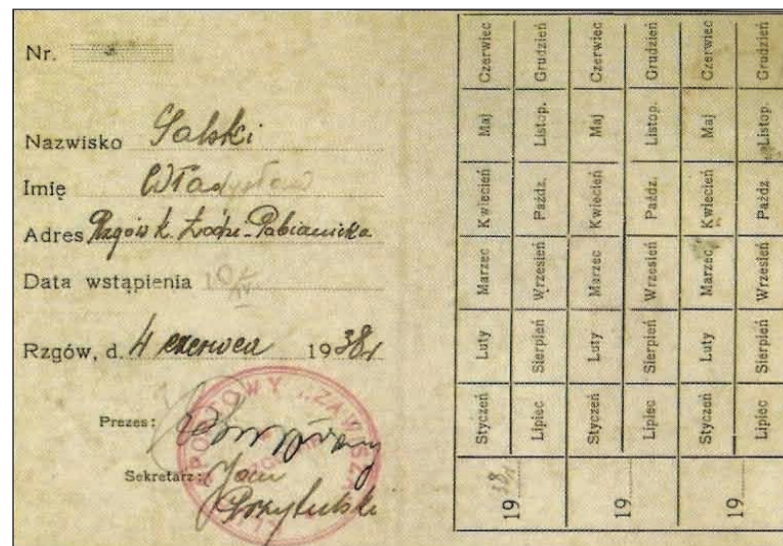 Nr.
Nazwisko Salski
Imię Władysław
Adres Rzgów k. Łodzi-Pabianicka
Data wstąpienia
Rzgów, d. 4 czerwca 1938r
Prezes:
Sekretarz: Jan
Przybulski
SPORTOWY „ZAWISZA
Styczeń Luty Marzec Kwiecień Maj Czerwiec
Lipiec Sierpień Wrzesień Paźdz. Listop. Grudzień
1938r
Styczeń Luty Marzec Kwiecień Maj Czerwiec
Lipiec Sierpień Wrzesień Paźdz. Listop. Grudzień
19
Styczeń Luty Marzec Kwiecień Maj Czerwiec
Lipiec Sierpień Wrzesień Paźdz. Listop. Grudzień
19